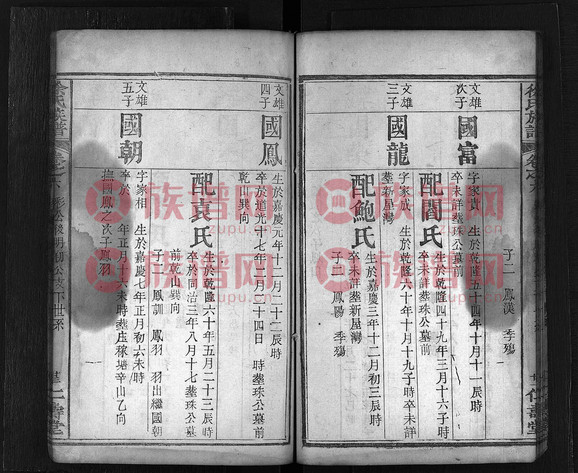 徐氏族譜
仁壽堂
文雄
次子
國富
字家貴 生於乾隆五十四年十月十一辰時
卒未詳塟珠公墓前
配閻氏
生於乾隆四十九年三月十六子時
卒未詳塟珠公墓前
子二 鳳漢 季殤
文雄
三子
國龍
字家成 生於乾隆六十年十月十九子時卒未詳
塟新屋灣
配鮑氏
生於嘉慶三年十二月初三辰時
卒未詳塟新屋灣
子二 鳳陽 季殤
文雄
四子
國鳳
生於嘉慶元年十二月二十二辰時
卒於道光十七年二月二十四日 時塟珠公墓前
乾山巽向
配袁氏
生於乾隆六十年五月二十三辰時
卒於同治三年八月十七塟珠公墓
前乾山巽向
子二 鳳訓 鳳羽 羽出繼國朝
文雄
五子
國朝
字家相 生於嘉慶七年正月初六未時
卒於 年正月十六未時塟庄稼塘辛山乙向
撫國鳳之次子鳳羽
徐氏族譜
仁壽堂
族譜网
zupu.cn
族譜网
zupu.cn